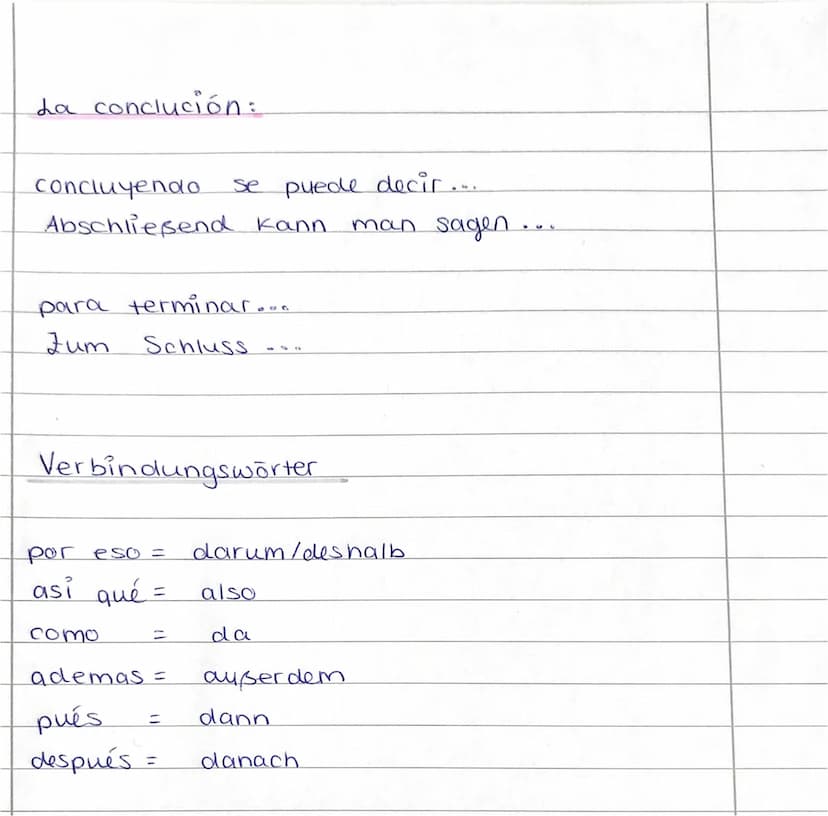 La conclución:
concluyendo se puede decir...
Abschließend kann man sagen...
para terminar....
Zum Schluss ....
Verbindungswörter
por eso = darum/deshalb
así qué = also
como = da
ademas = außerdem
pués = dann
después = danach